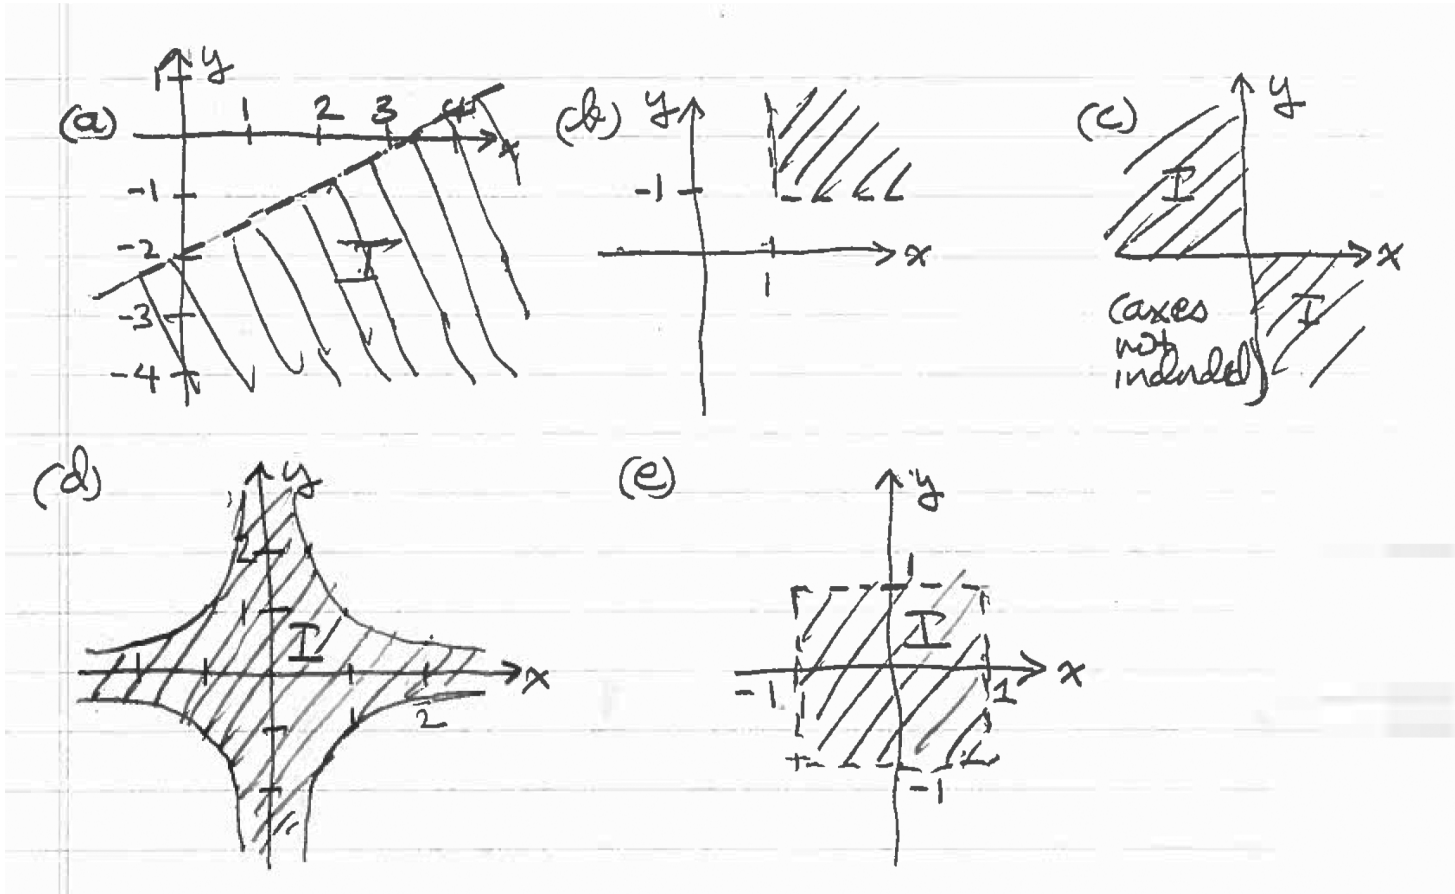 (a)
y
1
1 2 3 4
x
-1
-2
I
-3
-4
(b)
y
-1
x
1
(c)
y
I
x
I
(axes
not
included)
(d)
y
2
1
I
x
2
(e)
y
1
I
x
-1
1
-1